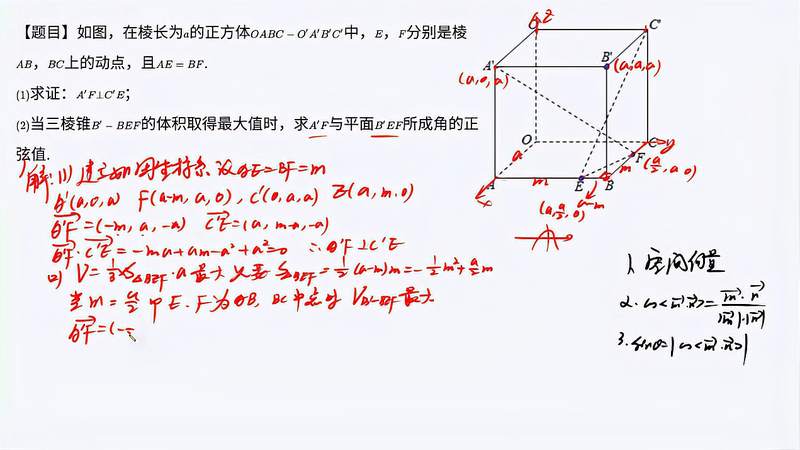 【题目】如图，在棱长为a的正方体OABC－O'A'B'C'中，E，F分别是棱
AB，BC上的动点，且AE=BF.
(1)求证：A'F⊥C'E；
(2)当三棱锥B'－BEF的体积取得最大值时，求A'F与平面B'EF所成角的正
弦值.
解:(1) 建立如图坐标系 设AE=BF=m
A'(a,0,a) F(a-m,a,0), C'(0,a,a) E(a,m,0)
A'F=(-m,a,-a) C'E=(a,m-a,-a)
A'F·C'E=-ma+am-a²+a²=0 ∴A'F⊥C'E
(2) V=1/3×S△BEF·a 最大 只要 S△BEF=1/2(a-m)m=-1/2m²+a/2m
当m=a/2 即E.F为AB,BC中点时 VB'-BEF最大
A'F=(-
z
O'
C'
A'
(a,0,a)
B'
(a,a,a)
O
a
C
y
F
(a/2,a,0)
m
A
m
E
B
x
a-m
(a,a/2,0)
1. 空间向量
2. cos<m,n>=m·n/|m|·|n|
3. sinθ=|cos<m,n>|